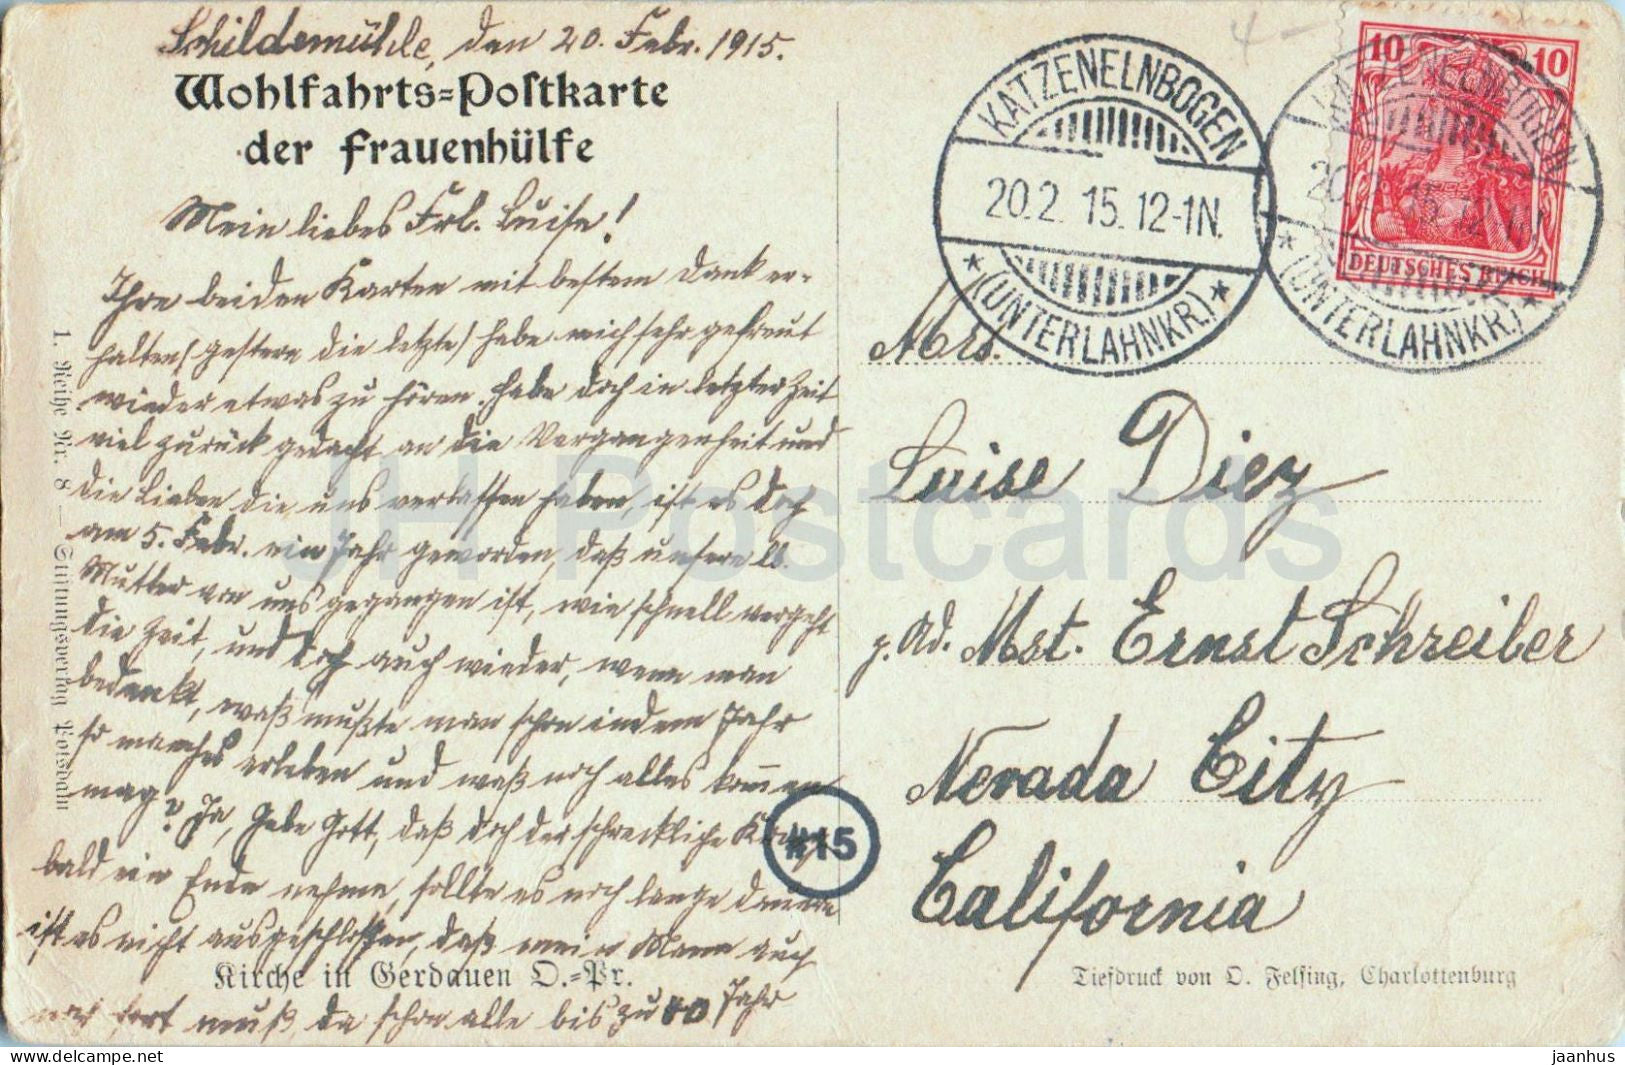 Schildsmühle, den 20. Febr. 1915.
Wohlfahrts=Postkarte
der Frauenhülfe
Mein liebes Frl. Luise!
Ihre beiden Karten mit bestem Dank er-
halten (gestern die letzte) habe mich sehr gefreut
wieder etwas zu hören. habe doch in letzter Zeit
viel zurück gedacht an die Vergangenheit und
die Lieben die uns verlassen haben, ist es doch
am 5. Febr. ein Jahr geworden, daß unsere lb.
Mutter von uns gegangen ist, wie schnell vergeht
die Zeit, und doch auch wieder, wenn man
bedenkt, waß mußte man schon in dem Jahr
so manches erleben und waß noch alles kommen
mag? Ja, Gebe Gott, daß doch der schreckliche Krieg
bald ein Ende nehme, sollte es noch lange dauern
ist es nicht ausgeschlossen, daß mein Mann auch
noch fort muß, da schon alle bis zu 40 Jahr
Kirche in Gerdauen O.=Pr.
1. Reihe Nr. 8 — Stiftungsverlag Potsdam
KATZENELNBOGEN
20.2.15.12-1N.
* (UNTERLAHNKR.) *
KATZENELNBOGEN
20.2.15.12-1N.
* (UNTERLAHNKR.) *
10 10
DEUTSCHES REICH
Mrs.
Luise Diez
p. Ad. Mst. Ernst Schreiber
Nevada City
California
#15
Tiefdruck von O. Felsing, Charlottenburg
JH Postcards
www.delcampe.net
jaanhus